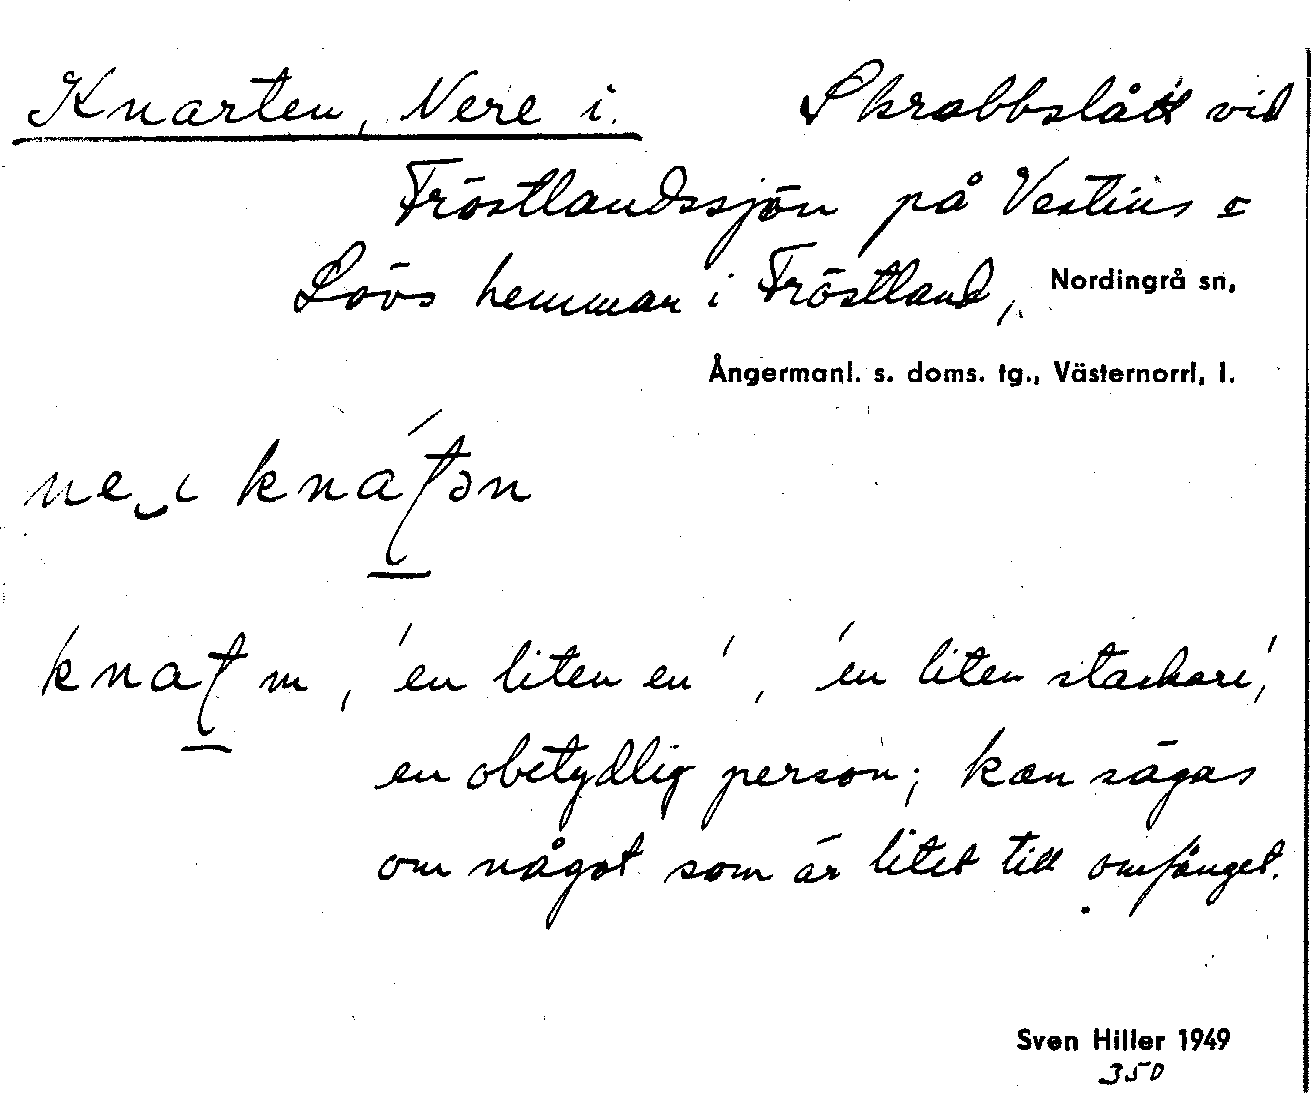 Knarten, Nere i. Skrabbslått vid
Fröstlandssjön på Vestins o
Lövs hemman i Fröstland, Nordingrå sn,
Ångermanl. s. doms. tg., Västernorrl, l.
knat m, 'en liten en', 'en liten stackare',
en obetydlig person; kan sägas
om något som är litet till omfånget.
Sven Hiller 1949
350